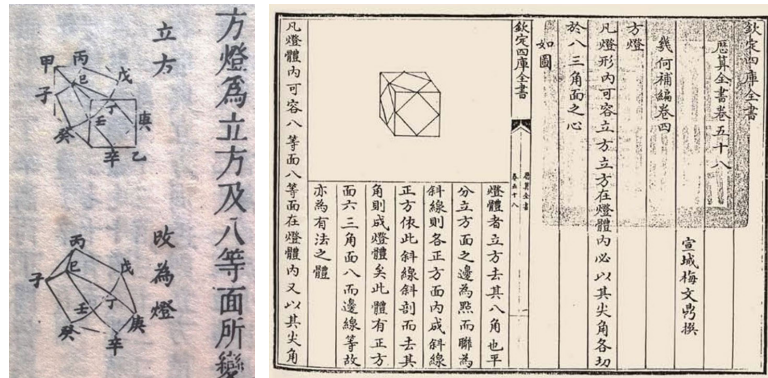 方燈為立方及八等面所變
立方
甲
丙
戊
子
巳
丁
庚
壬
癸
辛
乙
攺為燈
丙
戊
子
巳
丁
壬
庚
癸
辛
欽定四庫全書
厯算全書卷五十八
宣城梅文鼎撰
幾何補編卷四
方燈
凡燈形內可容立方立方在燈體內必以其尖角各切
於八三角面之心
如圖
欽定四庫全書
厯算全書
卷五十八
燈體者立方去其八角也平
分立方面之邊為㸃而聯為
斜線則各正方面內成斜線
正方依此斜線斜剖而去其
角則成燈體矣此體有正方
面六三角面八而邊線等故
亦為有法之體
凡燈體內可容八等面八等面在燈體內又以其尖角